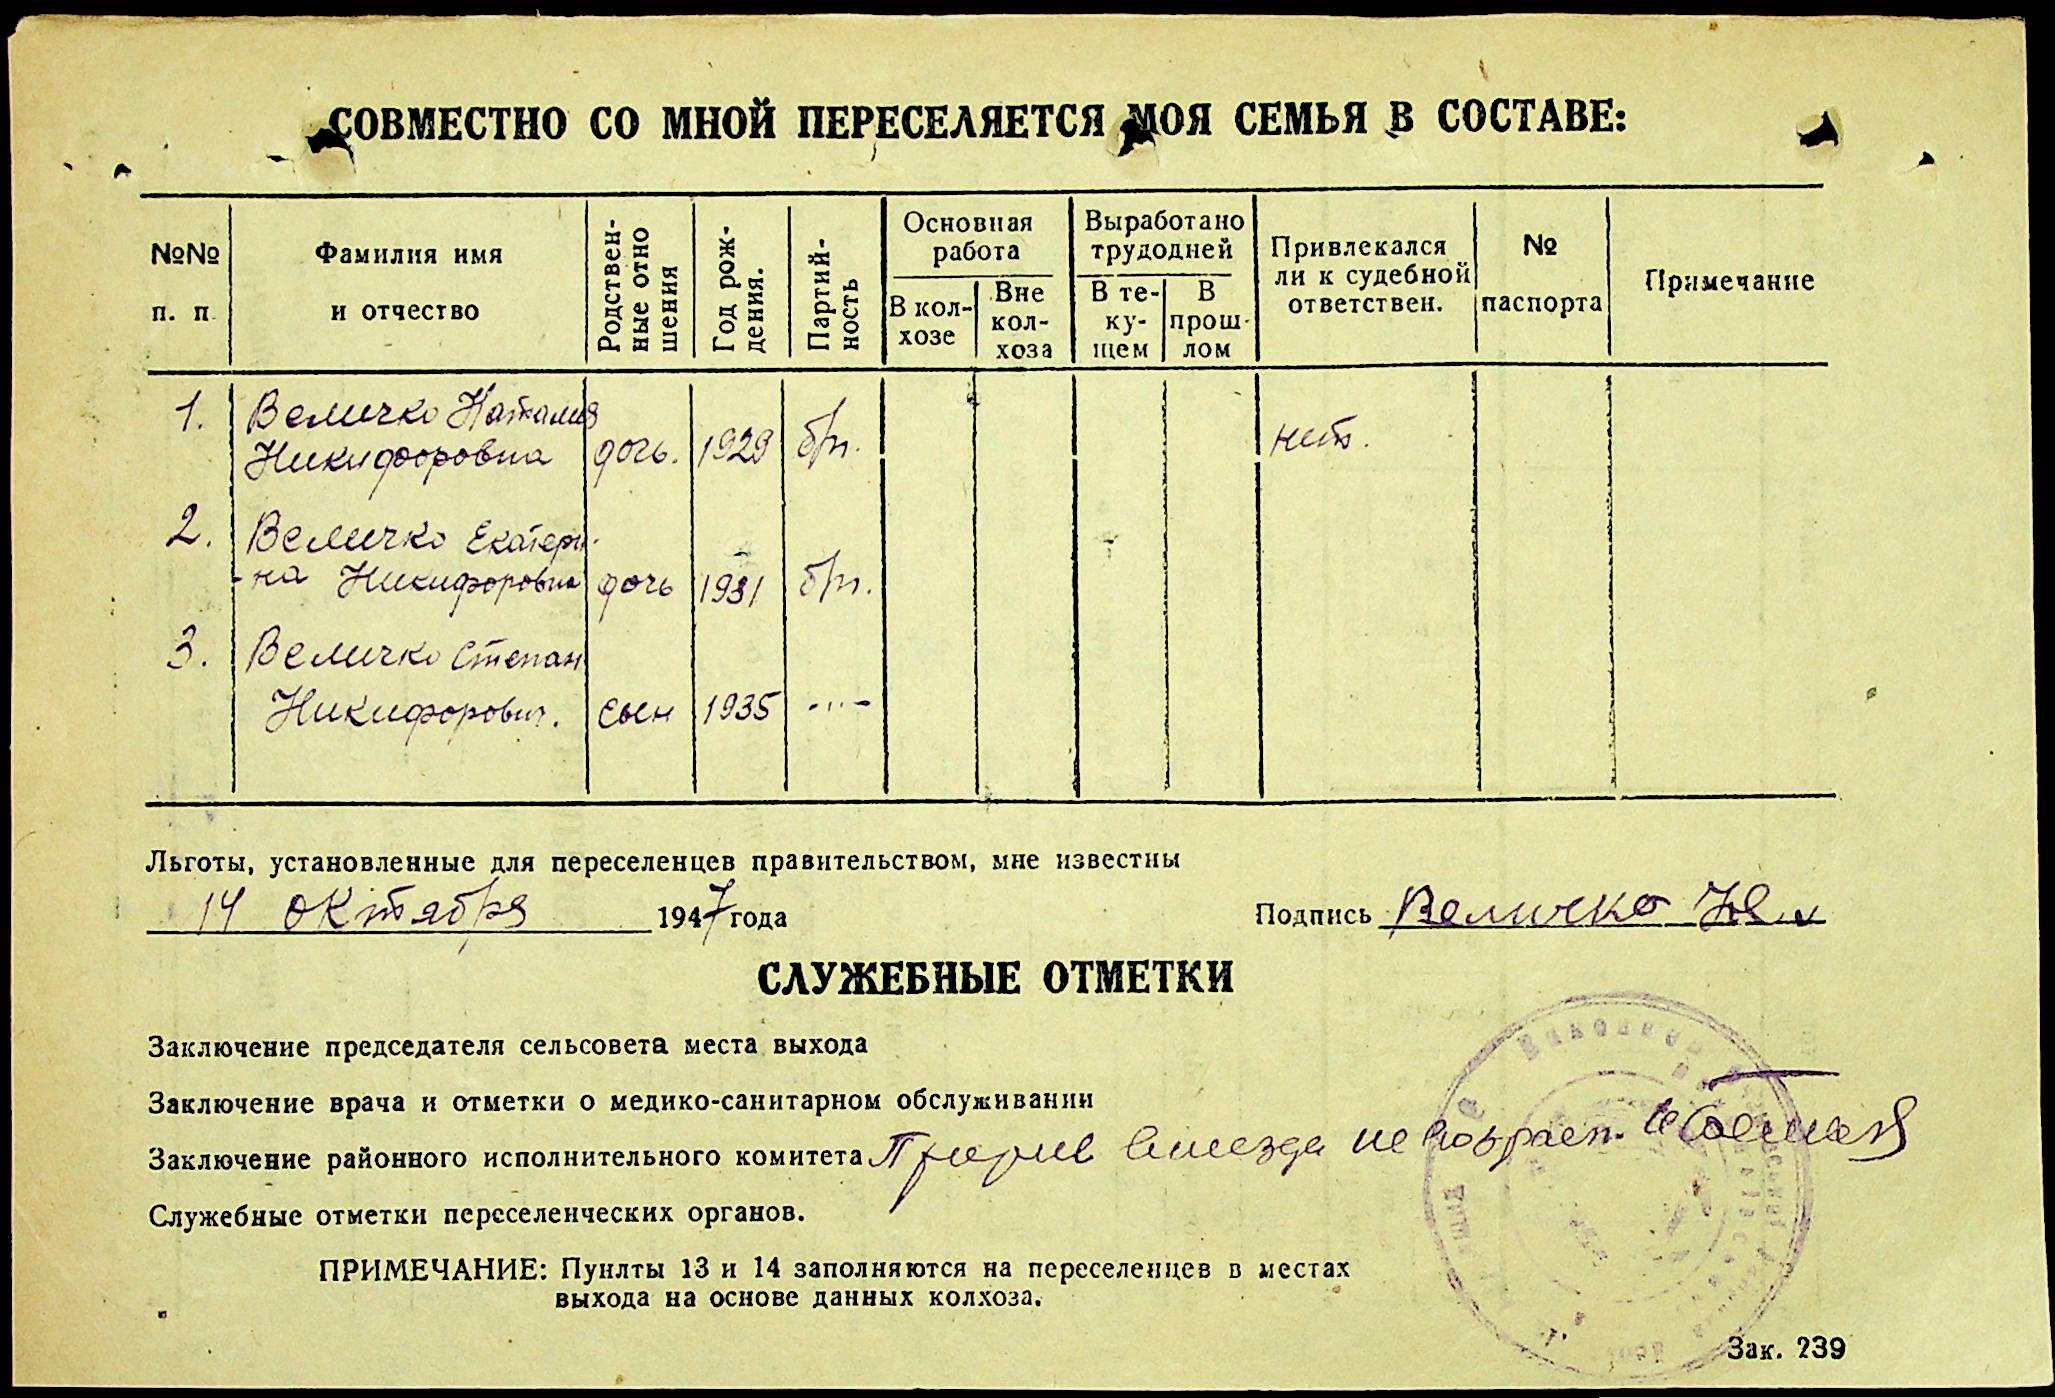 СОВМЕСТНО СО МНОЙ ПЕРЕСЕЛЯЕТСЯ МОЯ СЕМЬЯ В СОСТАВЕ:
№№ п. п
Фамилия имя и отчество
Родствен-ные отно шения
Год рож-дения.
Партий-ность
Основная работа
В кол-хозе
Вне кол-хоза
Выработано трудодней
В те-ку-щем
В прош-лом
Привлекался ли к судебной ответствен.
№ паспорта
Примечание
1. Величко Наталия
Никифоровна дочь. 1929 б/п. нет.
2. Величко Екатери-
-на Никифоровна дочь 1931 б/п.
3. Величко Степан
Никифорович. сын 1935 -"-
Льготы, установленные для переселенцев правительством, мне известны
14 октября 1947 года Подпись Величко
СЛУЖЕБНЫЕ ОТМЕТКИ
Заключение председателя сельсовета места выхода
Заключение врача и отметки о медико-санитарном обслуживании
Заключение районного исполнительного комитета
Служебные отметки переселенческих органов.
ПРИМЕЧАНИЕ: Пунлты 13 и 14 заполняются на переселенцев в местах
выхода на основе данных колхоза.
Зак. 239